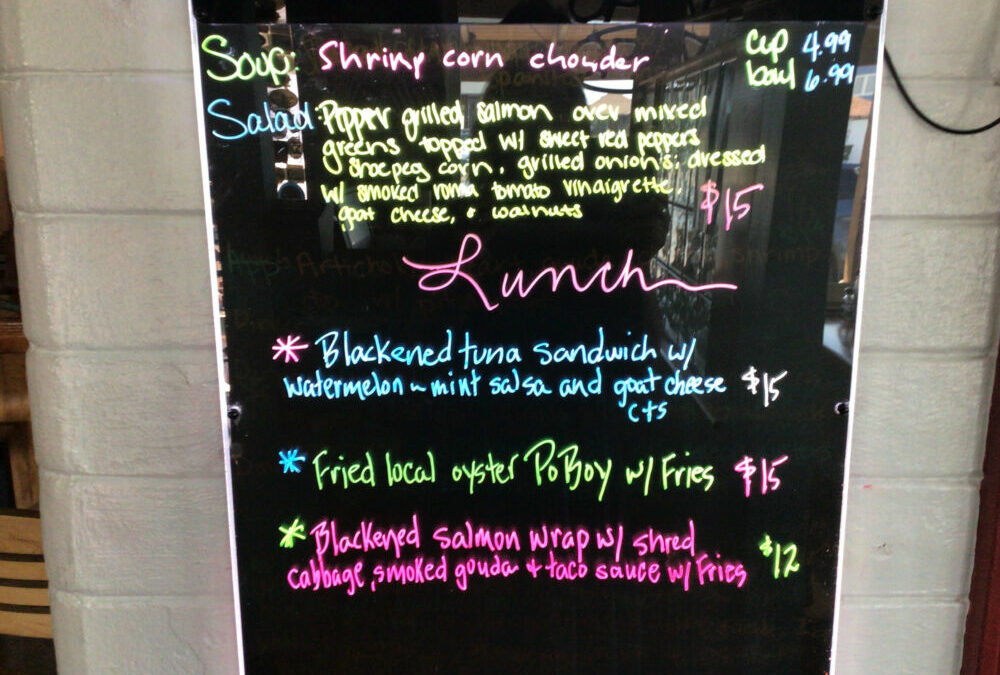 Soup: Shrimp corn chowder cup 4.99
bowl 6.99
Salad: Pepper grilled salmon over mixed
greens topped w/ sweet red peppers
shoepeg corn, grilled onions; dressed
w/ smoked roma tomato vinaigrette,
goat cheese, & walnuts $15
Lunch
* Blackened tuna sandwich w/
watermelon ~ mint salsa and goat cheese $15
cts
* Fried local oyster PoBoy w/ Fries $15
* Blackened salmon wrap w/ shred
cabbage, smoked gouda + taco sauce w/ Fries $12